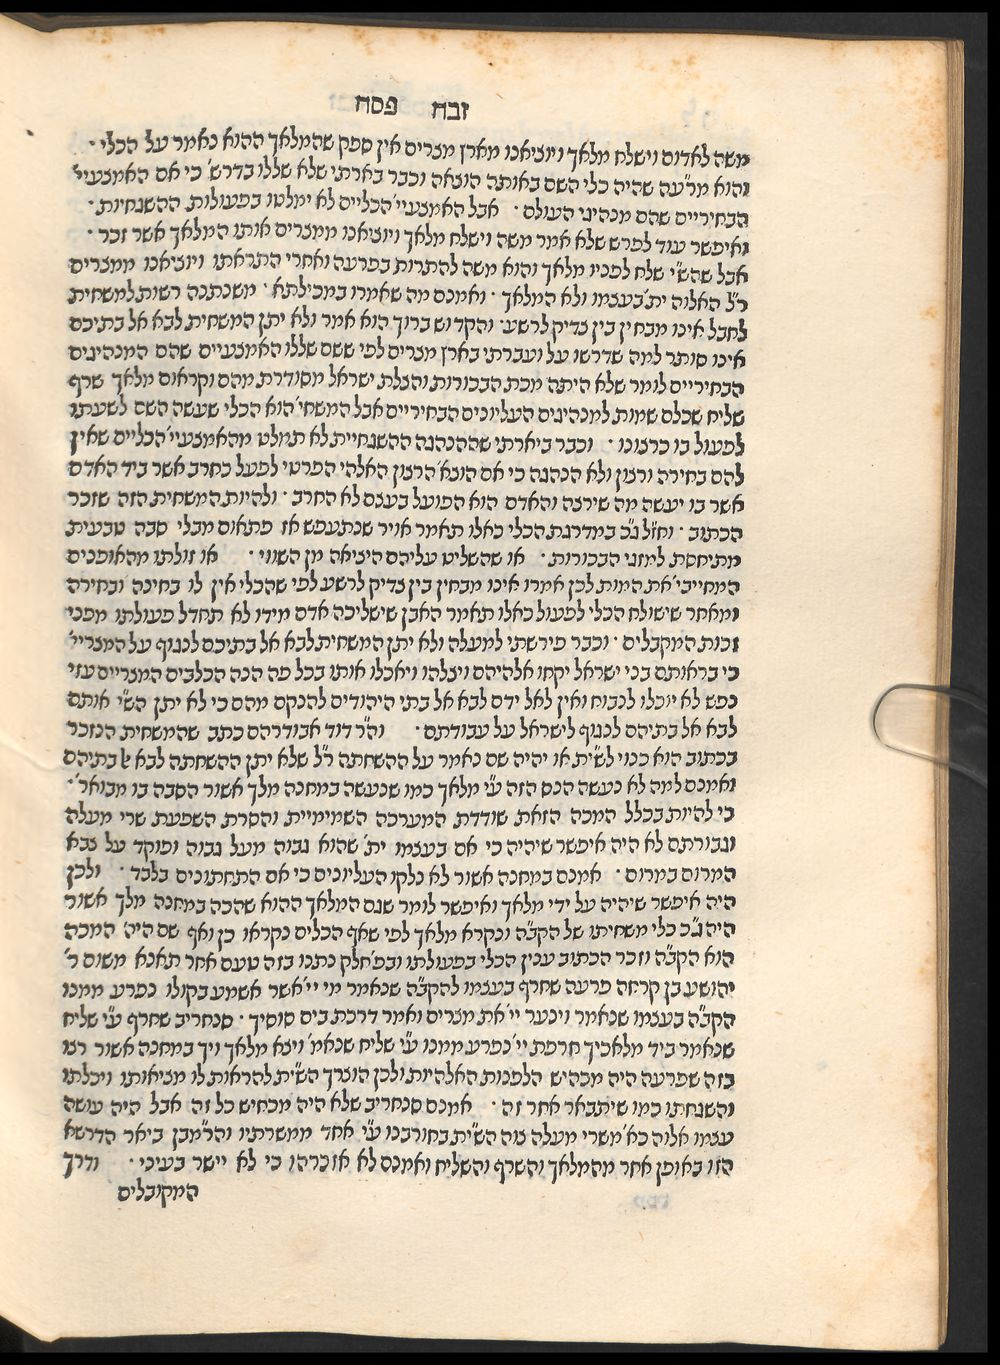 זבח פסח
משה לאדום וישלח מלאך ויוציאנו מארץ מצרים אין ספק שהמלאך ההוא נאמר על הכלי ·
והוא מר״עה שהיה כלי השם באותה הוצאה וכבר בארתי שלא שללו בדרש׳ כי אם האמצעיי׳
הבחיריים שהם מנהיגי העולם · אבל האמצעיי׳ הכליים לא ימלטו בפעולות ההשגחיות ·
ואיפשר עוד לפרש שלא אמר משה וישלח מלאך ויוציאנו ממצרים אותו המלאך אשר זכר ·
אבל שהש״י שלח לפניו מלאך והוא משה להתרות בפרעה ואחרי התראתו ויוציאנו ממצרים
ר״ל האלוה ית׳ בעצמו ולא המלאך · ואמנם מה שאמרו במכילתא · משנתנה רשות למשחית
לחבל אינו מבחין בין צדיק לרשע · והקדוש ברוך הוא אמר ולא יתן המשחית לבא אל בתיכם
אינו סותר למה שדרשו על ועברתי בארץ מצרים לפי ששם שללו האמצעיים שהם המנהיגים
הבחיריים לומר שלא היתה מכת הבכורות והצלת ישראל מסודרת מהם וקראום מלאך שרף
שליח שכלם שמות למנהיגים העליונים הבחיריים אבל המשחי׳ הוא הכלי שעשה השם לשעתו
לפעול בו כרצונו · וכבר ביארתי שההנהגה ההשגחיית לא תמלט מהאמצעיי׳ הכליים שאין
להם בחירה ורצון ולא הנהגה כי אם הוצא׳ הרצון האלהי הפרטי לפעל כחרב אשר ביד האדם
אשר בו יעשה מה שירצה והאדם הוא הפועל בעצם לא החרב · ולהיות המשחית הזה שזכר
הכתוב · וחז״ל ג״כ במדרגת הכלי כאלו תאמר אויר שנתעפש אז פתאום מבלי סבה טבעית
מתיחסת למזגי הבכורות · או שהשליט עליהם היציאה מן השווי · או זולתו מהאופנים
המחייבי׳ את המות לכן אמרו אינו מבחין בין צדיק לרשע לפי שהכלי אין לו בחינה ובחירה
ומאחר שישולח הכלי לפעול כאלו תאמר האבן שישליכה אדם מידו לא תחדל פעולתו מפני
זכות המקבלים · וכבר פירשתי למעלה ולא יתן המשחית לבא אל בתיכם לנגוף על המצריי׳
כי בראותם בני ישראל יקחו אלהיהם ויצלהו ויאכלו אותו בכל פה הנה הכלבים המצריים עזי
נפש לא יוכלו לנבוח ואין לאל ידם לבא אל בתי היהודים להנקם מהם כי לא יתן הש״י אותם
לבא אל בתיהם לנגוף לישראל על עבודתם · וה״ר דוד אבודרהם כתב שהמשחית הנזכר
בכתוב הוא כנוי לש״ית או יהיה שם נאמר על ההשחתה ר״ל שלא יתן ההשחתה לבא אל בתיהם
ואמנם למה לא נעשה הנס הזה ע״י מלאך כמו שנעשה במחנה מלך אשור הסבה בו מבואר׳ ·
כי להיות בכלל המכה הזאת שודדת המערכה השמימיית והסרת השפעת שרי מעלה
וגבורתם לא היה איפשר שיהיה כי אם בעצמו ית׳ שהוא גבוה מעל גבוה ופוקד על צבא
המרום במרום · אמנם במחנה אשור לא נלקו העליונים כי אם התחתונים בלבד · ולכן
היה איפשר שיהיה על ידי מלאך ואיפשר לומר שגם המלאך ההוא שהכה במחנה מלך אשור
היה ג״כ כלי משחיתו של הקב״ה ונקרא מלאך לפי שאף הכלים נקראו כן ואף שם היה המכה
הוא הקב״ה וזכר הכתוב ענין הכלי בפעולתו ובפ׳ חלק נתנו בזה טעם אחר תאנא משום ר׳
יהושע בן קרחה פרעה שחרף בעצמו להקב״ה שנאמר מי יי׳ אשר אשמע בקולו נפרע ממנו
הקב״ה בעצמו שנאמר וינער יי׳ את מצרים ואמר דרכת בים סוסיך · סנחריב שחרף ע״י שליח
שנאמר ביד מלאכיך חרפת יי׳ נפרע ממנו ע״י שליח שנאמ׳ ויצא מלאך ויך במחנה אשור רצו
בזה שפרעה היה מכחיש הלפנות האלהיות ולכן הוצרך הש״ית להראות לו מציאותו ויכלתו
והשגחתו כמו שיתבאר אחר זה · אמנם סנחריב שלא היה מכחיש כל זה אבל היה עושה
עצמו אלוה כא׳ משרי מעלה צוה הש״ית בחורבנו ע״י אחד ממשרתיו והר״מבן ביאר הדרשא
הזו באופן אחר מהמלאך והשרף והשליח ואמנם לא אזכרהו כי לא יישר בעיני · ודרך
המקובלים